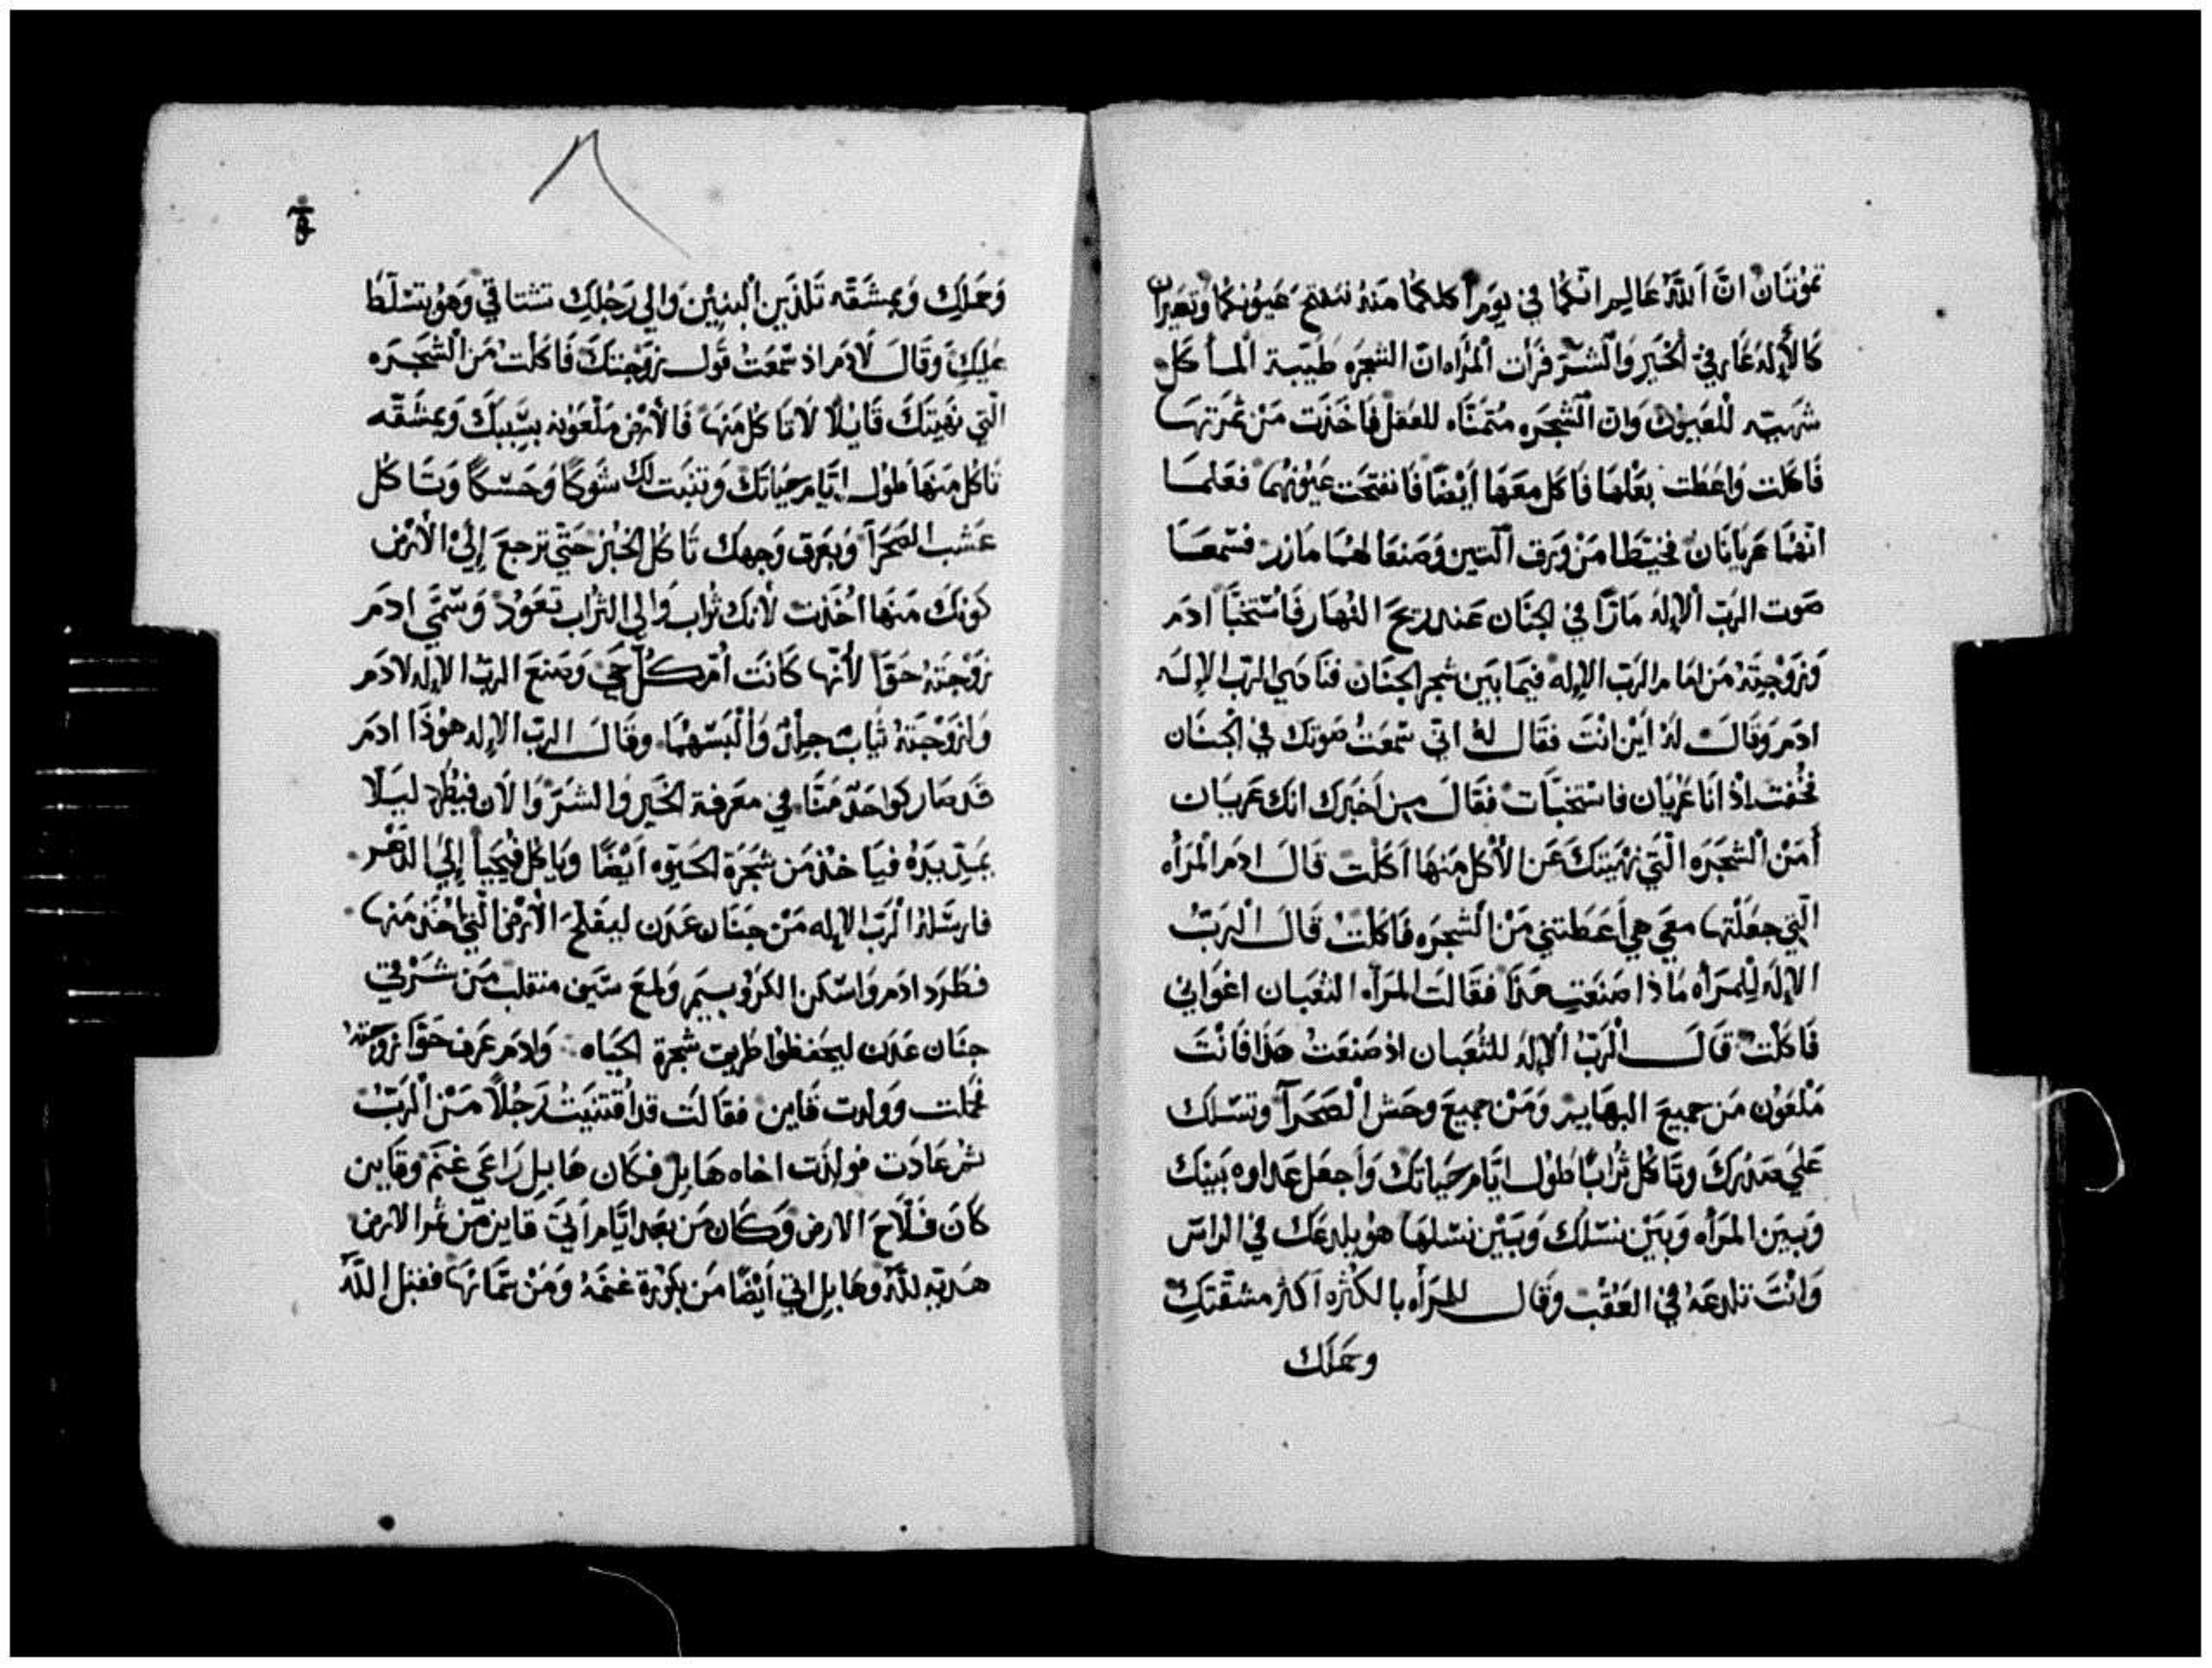 تموتَان انَّ اَللَّه عَالِم انّكُما في يوم اكلكمَا منهُ تنفتح عيُونكمَا وَتصيران
كَالأِله عَارفي اَلخَير وَالشّر فَرَأت اَلمرأه ان الشجره طَيّبة اَلمأكل
شهيّه للعيون وَان اَلشجَره متمنّاه للعقل فاخذت مَن ثمرَتهَا
فَاكلت وَاعَطت بعْلهَا فَاكل معَهَا ايْضًا فَانفتحَت عيُونهما فعَلما
انّهما عريانَان فخيّطَا مَنْ وَرق اَلتين وَصَنعَا لهما مَازر فسّمعَا
صَوت الربّ اَلاِله مَارًا في الجنَان عَند ريحَ النهَار فَاسْتخبَّا ادَم
وَزَوْجتهُ مَن امَام الرَبّ الاِله فيمَا بَين شجر الجنَان فنَادَي الربّ الاِلَه
ادَم وَقَالَ لهُ اَيْن انْتَ فقَال لهُ اني سّمعَتُ صَوتكَ في الجنَان
فخُفت اذْ انَا عَرْيَان فاسْتخبَّات فقَالَ من اَخبَركَ انكَ عَريَان
أمَنْ اَلشجَرَه اَلَّتي نَهَيتكَ عَن الأكل مَنهَا اكلت قالَ ادَم المرَأه
اَلّتي جعَلْتهَا معَي هي اَعَطتني مَنْ اَلشجَره فَاكلتُ قالَ اَلربُّ
الاِلَه لِلمرَأه مَاذَا صَنعَتِ هَذَا فقَالتَ المرَأه الثعَبان اغوَاني
فَاكلت قَالَ اَلرَبُّ اَلاِلهُ للثُعَبان اذ صَنعَتَ هَذَا فَانْتَ
مَلْعَوُن مَن جميعَ البهَايم وَمَنْ جميعَ وحَش اَلصَحَرآ وتسّلك
عَلَي صَدرَكَ وتَاكل ترابًا طول ايَّام حَيَاتكَ وَاَجعَل عَداوه بَينَك
وَبيَن المرَأه وَبَيْن نسّلك وَبَيْن نسّلهَا هوُ يلدعَكَ في الراسّ
وَانْتَ تلدعَهُ في العَقَبْ وَقال للمرَأه بالكثره اكثر مشقّتكِ
وحَملَك
وَحَملَكِ وَبمشَقّه تَلدَين اَلبنيْن وَالي رَجْلكِ تشتَاقي وَهوُ يتسّلّطَ
عَليكِ وَقَالَ لادَم اذ سّمَعَت قَول زوَجتكَ فَاكلتَ مَن اَلشجَره
الّتي نهَيتكَ قَايلًا لَاتَاكل مَنهَا فَالأرض ملْعَوُنه بسَّببكَ وَبمشقّه
تَاكل مَنهَا طول ايّام حيَاتكَ وَتنبَت لك شوَكًا وَحسّكًا وَتاكل
عَشب الصَحَرآ وَبعَرق وَجهكَ تَاكل الخَبز حَتّي تَرجعَ إلَي الأرض
كَونكَ مَنهَا اُخذَتَ لأنكَ تُراب وَالي التراب تعَوُد وَسّمّي ادَم
زَوْجَتهُ حَوّا لأنّهَا كَانتَ اُمّ كلّ حَي وَصَنعَ الربّ الاِله لادَم
وَلزوَجتهُ ثيَابَ جلدٍ وَاَلْبَسّهمَا وقَالَ الربّ الاِله هوُذَا ادَم
قَد صَار كوَاحَد مَنّا في معَرفة الخَير وَالشرّ وَالان فيُطْرد ليَلّا
يمَدّ يَدَهُ فيَاخذ مَن شجَرة الحَيوه اَيْضًا وَيَاكل فيُحيَا إِلي الدَهر
فارسّلهُ اَلرَبّ الاِله مَن جنَان عَدَن ليَفلحَ الأرض الّتي اُخذ مَنهَا
فطَرد ادَم وَاسّكن الكرُوبيم وَلمعَ سّيَف منقلب مَن شرْقي
جنَان عَدَن ليحَفظوُا طَريق شجرة الحَيَاه وَادَم عَرف حَوّا زوجتهُ
فحَملت ووَلدت قاين فقَالتَ قد اقتنيَت رَجُلًا مَنْ اَلرَبّ
ثم عَادَت فولدَت اخاه هَابل فكَان هَابيل رَاعَي غنَم وقَاين
كَان فلّاحَ الارض وَكَان مَن بعَد ايَّام اَتي قاين مَن ثمر الارض
هَديّه للَّه وهَابيل اتي اَيْضًا مَن بكوَرة غنمَهُ وَمَنْ سّمَانهَا فقبل اللَّه